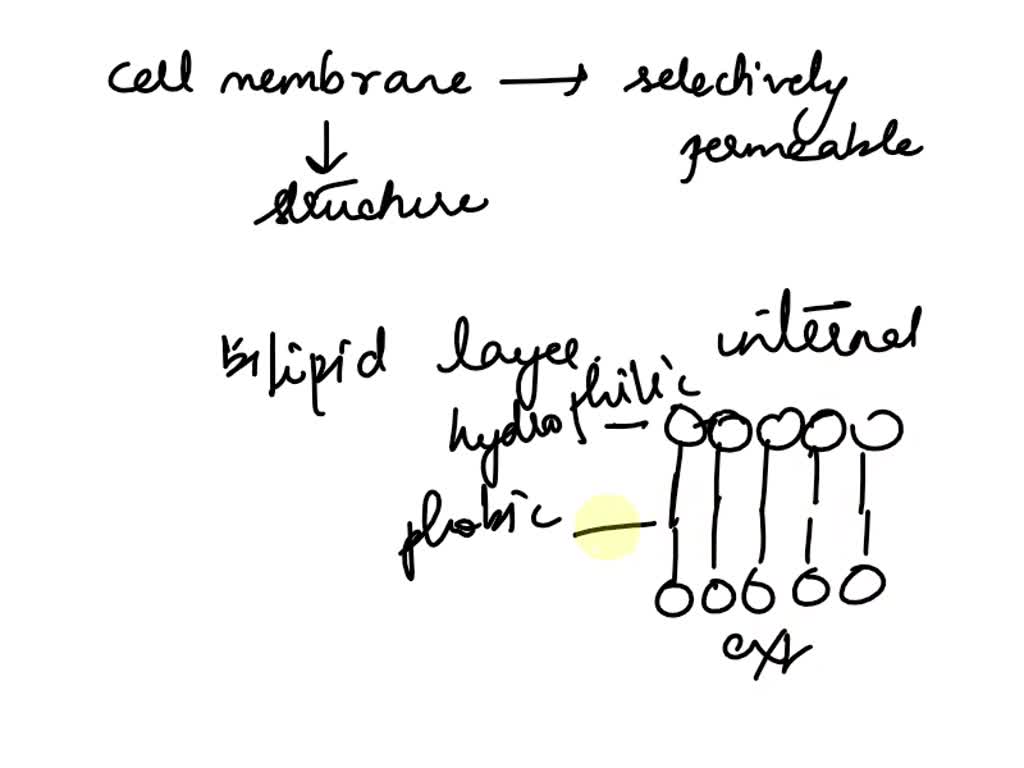 cell membrane → selectively
permeable
↓
structure
Bilipid layer internal
hydrophilic
phobic
ext